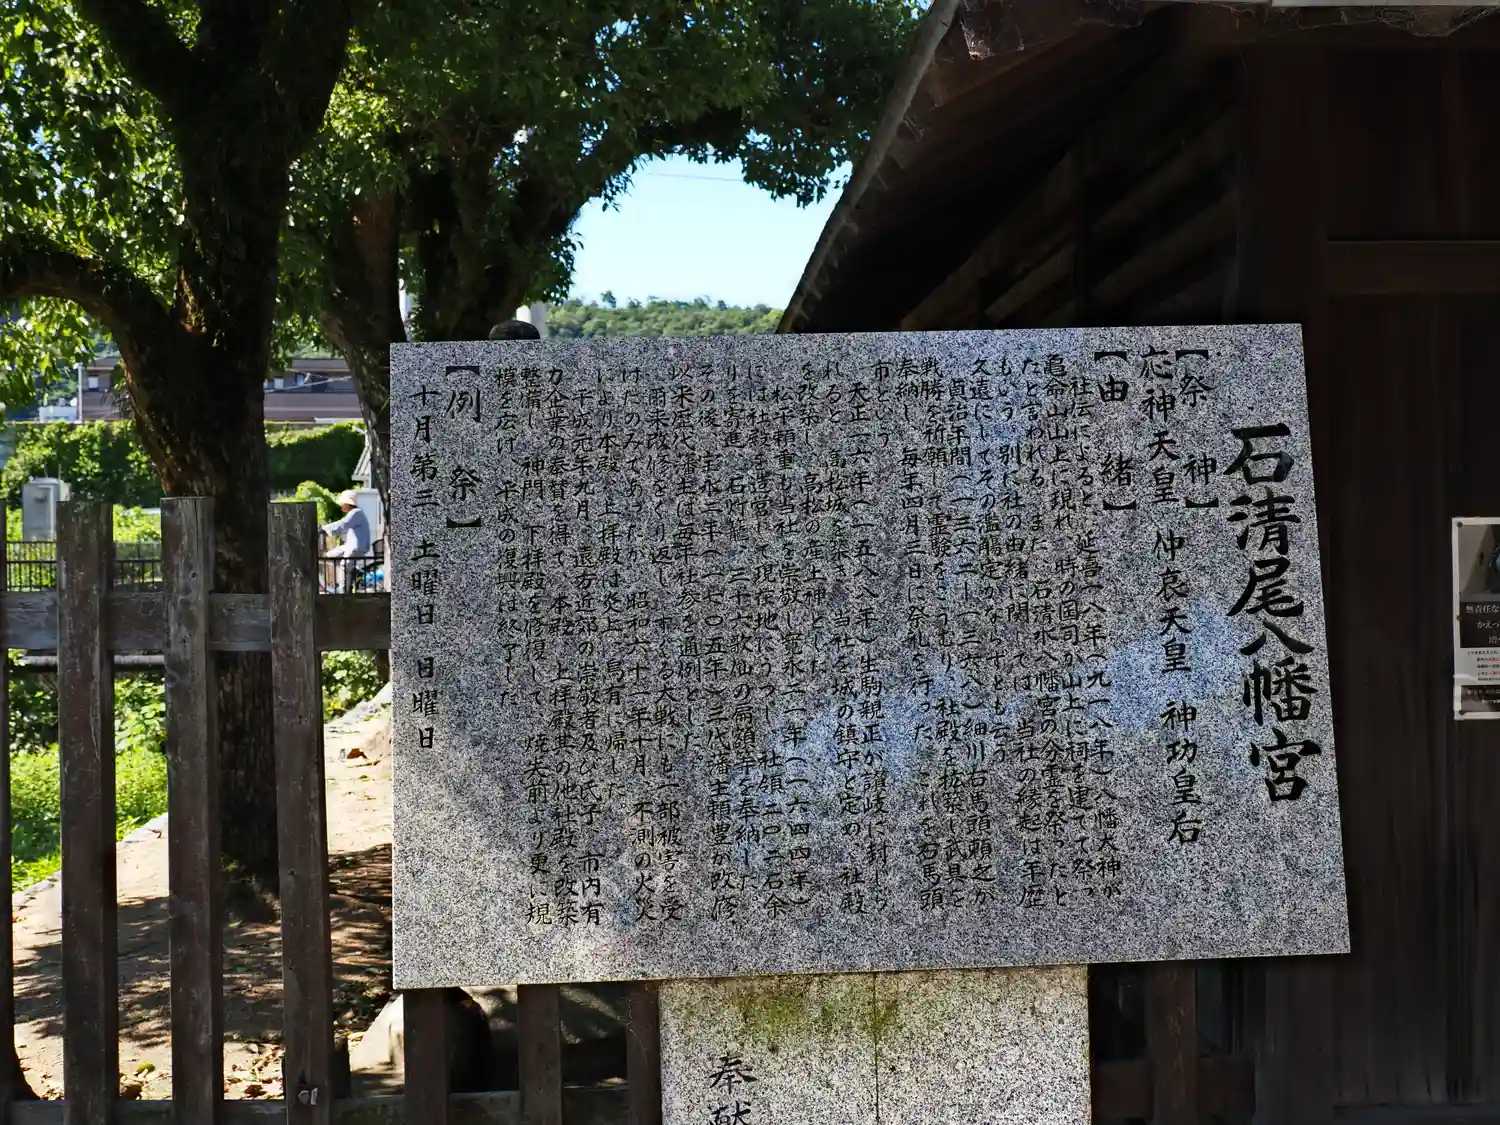 石清尾八幡宮
【祭　神】
応神天皇　仲哀天皇　神功皇后
【由　緒】
社伝によると、延喜一八年(九一八年)八幡大神が
亀命山山上に現れ、時の国司が山上に祠を建てて祭っ
たと言われる。また、石清水八幡宮の分霊を祭ったと
もいう。別に社の由緒に関しては、当社の縁起は年歴
久遠にしてその濫觴定かならずとも云う。
貞治年間(一三六二―一三六八)細川右馬頭頼之が
戦勝を祈願して霊験をこうむり、社殿を改築し武具を
奉納し、毎年四月三日に祭礼を行った。これを右馬頭
市という。
天正一六年(一五八八年)生駒親正が讃岐に封じら
れると、高松城を築き、当社を城の鎮守と定め、社殿
を改築し、高松の産土神とした。
松平頼重も当社を崇敬し、(一六四四年)
には社殿を造営して現在地にうつし、社領二〇二石余
りを寄進、石灯籠、三十六歌仙の扁額等を奉納した。
その後、宝永二年(一七〇五年)三代藩主頼豊が改修
以来歴代藩主は毎年社参を通例とした。
爾来改修をくり返し、すぐる大戦にも一部被害を受
けたのみであったが、昭和六十二年十月、不測の火災
により本殿、上拝殿は炎上、烏有に帰した。
平成元年九月、遠方近郊の崇敬者及び氏子、市内有
力企業の奉賛を得て、本殿、上拝殿其の他社殿を改築
整備し、神門、下拝殿を修復して、焼失前より更に規
模を広げ、平成の復興は終了した。
【例　祭】
十月第三　土曜日　日曜日
奉献
無責任な
かえっ